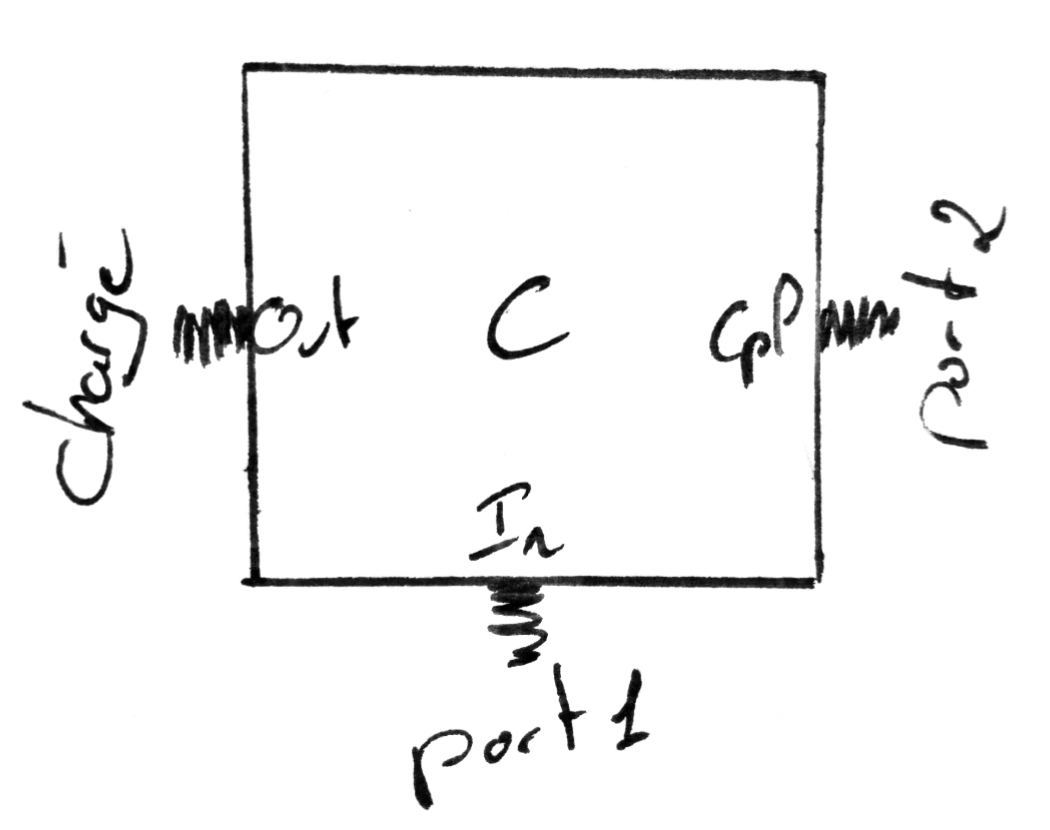 Charge
Out
C
Cpl
Port 2
In
port 1